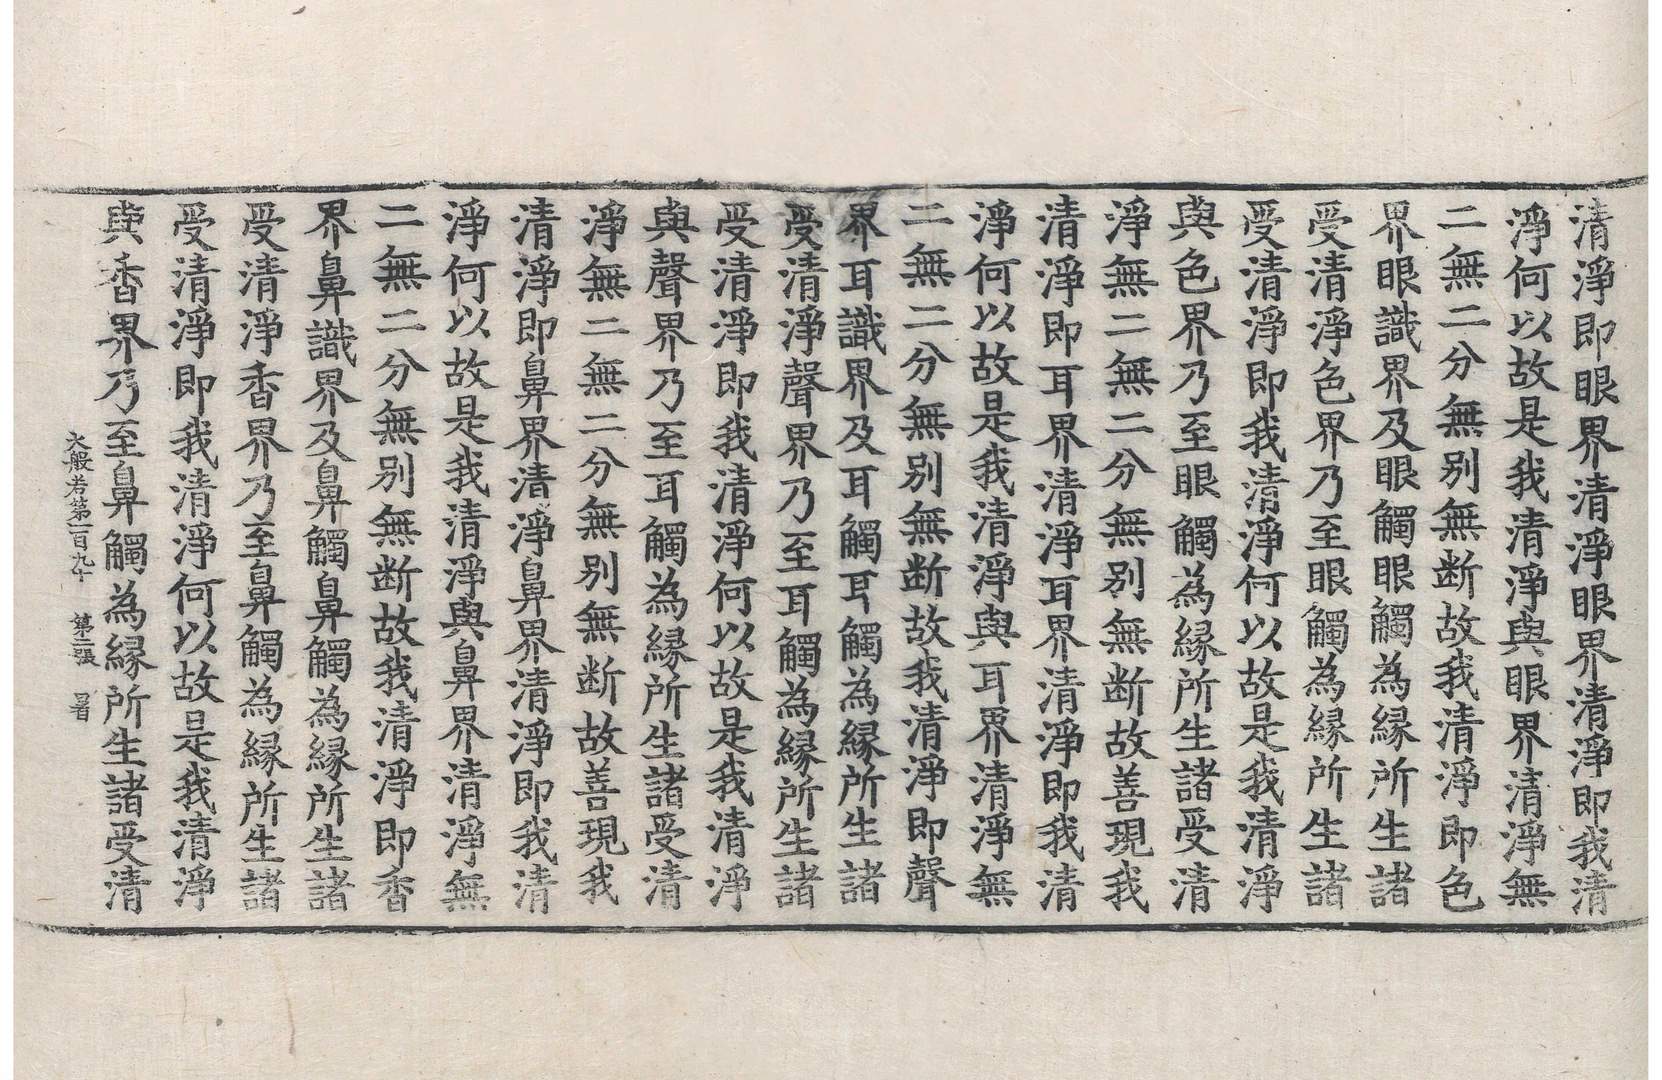 清淨即眼界清淨眼界清淨即我清
淨何以故是我清淨與眼界清淨無
二無二分無別無断故我清淨即色
界眼識界及眼觸眼觸為縁所生諸
受清淨色界乃至眼觸為縁所生諸
受清淨即我清淨何以故是我清淨
與色界乃至眼觸為縁所生諸受清
淨無二無二分無別無断故善現我
清淨即耳界清淨耳界清淨即我清
淨何以故是我清淨與耳界清淨無
二無二分無別無断故我清淨即聲
界耳識界及耳觸耳觸為縁所生諸
受清淨聲界乃至耳觸為縁所生諸
受清淨即我清淨何以故是我清淨
與聲界乃至耳觸為縁所生諸受清
淨無二無二分無別無断故善現我
清淨即鼻界清淨鼻界清淨即我清
淨何以故是我清淨與鼻界清淨無
二無二分無別無断故我清淨即香
界鼻識界及鼻觸鼻觸為縁所生諸
受清淨香界乃至鼻觸為縁所生諸
受清淨即我清淨何以故是我清淨
與香界乃至鼻觸為縁所生諸受清
大般若第一百九十 第二張 暑